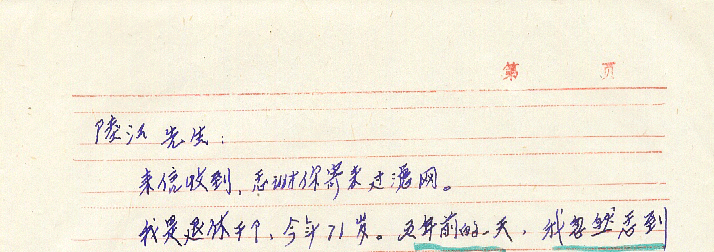 第 页
先生：
来信收到，感谢你寄来过滤网。
我是退休干部、今年71岁。五年前的一天，我忽然感到